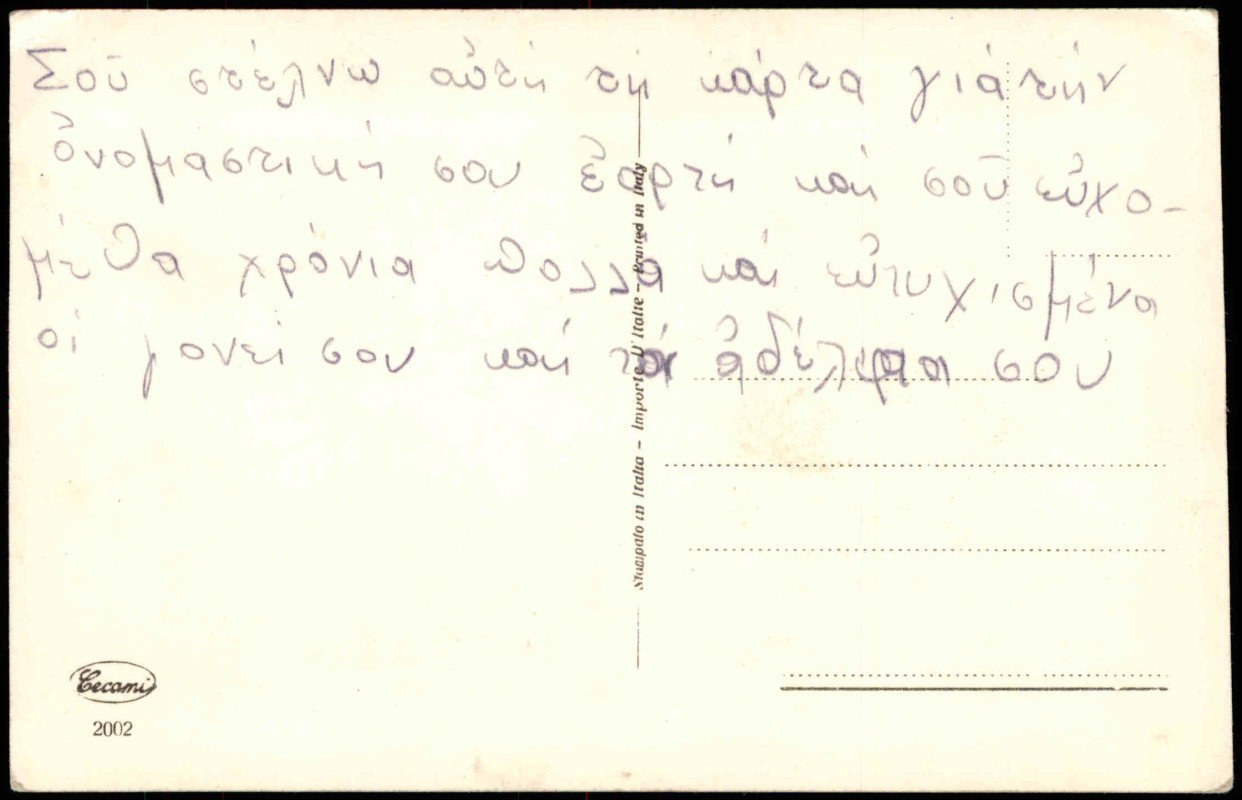 Σοῦ στέλνω αὐτή τή κάρτα γιά τήν
ὀνομαστική σου ἑορτή καί σοῦ εὐχο-
μέθα χρόνια πολλά καί εὐτυχισμένα
οἱ γονεί σου καί τά ἀδέλφια σου
Stampato in Italia - Importe D'Italie - Printed in Italy
Cecami
2002